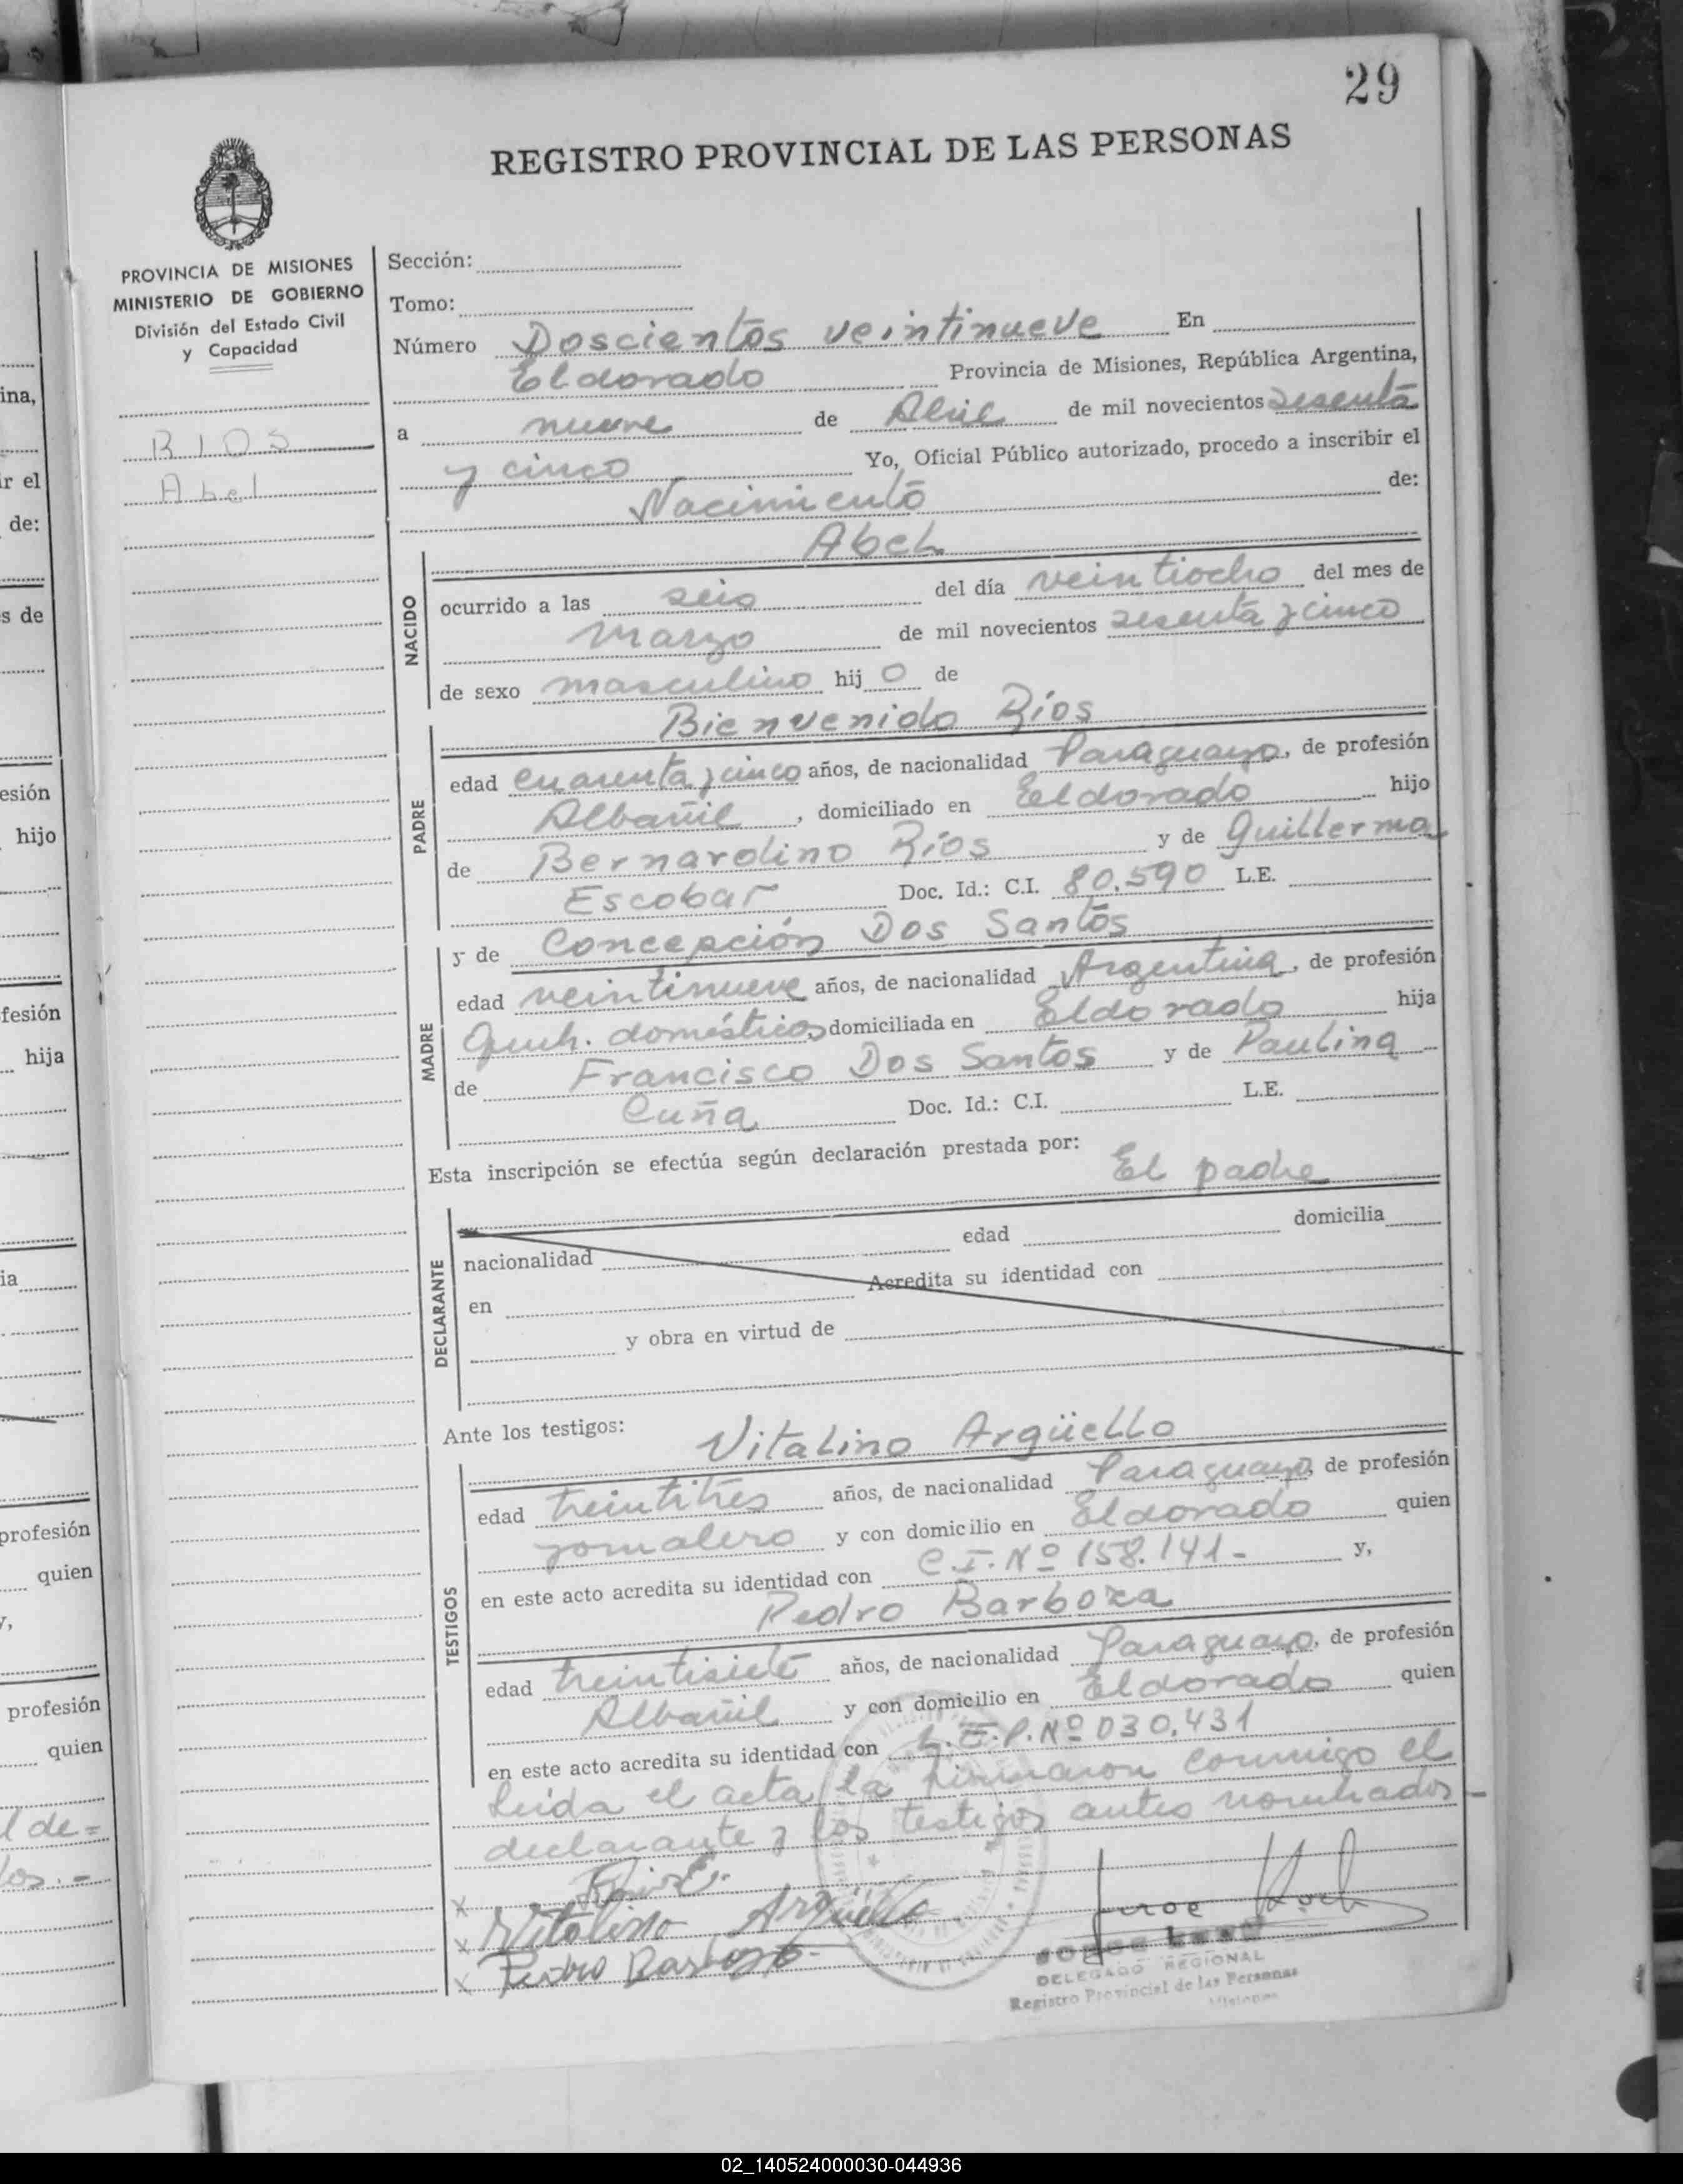 29
REGISTRO PROVINCIAL DE LAS PERSONAS
PROVINCIA DE MISIONES
MINISTERIO DE GOBIERNO
División del Estado Civil
y Capacidad
RIOS
Abel
Sección:
Tomo:
Número Doscientos veintinueve En
Eldorado Provincia de Misiones, República Argentina,
a nueve de Abril de mil novecientos sesenta
y cinco Yo, Oficial Público autorizado, procedo a inscribir el
Nacimiento de:
Abel
NACIDO
ocurrido a las seis del día veintiocho del mes de
marzo de mil novecientos sesenta y cinco
de sexo masculino hij o de
Bienvenido Ríos
PADRE
edad cuarenta y cinco años, de nacionalidad Paraguayo, de profesión
Albañil, domiciliado en Eldorado hijo
de Bernardino Ríos y de Guillerma
Escobar Doc. Id.: C.I. 80.590 L.E.
y de Concepción Dos Santos
MADRE
edad veintinueve años, de nacionalidad Argentina, de profesión
Queh. domésticos, domiciliada en Eldorado hija
de Francisco Dos Santos y de Paulina
Cuña Doc. Id.: C.I. L.E.
Esta inscripción se efectúa según declaración prestada por: El padre
DECLARANTE
edad domicilia
nacionalidad
en Acredita su identidad con
y obra en virtud de
Ante los testigos: Vitalino Argüello
TESTIGOS
edad treintitres años, de nacionalidad Paraguayo, de profesión
jornalero y con domicilio en Eldorado quien
en este acto acredita su identidad con C.I. Nº 158.141- y,
Pedro Barboza
edad treintisiete años, de nacionalidad Paraguayo, de profesión
Albañil y con domicilio en Eldorado quien
en este acto acredita su identidad con Nº 030.431
Leida el acta la firmaron conmigo el
declarante y los testigos antes nombrados -
x
x Vitalino Argüello
x Pedro Barboza
DELEGADO REGIONAL
Registro Provincial de las Personas
Misiones
ina,
ir el
de:
s de
esión
hijo
fesión
hija
ia
profesión
quien
y,
profesión
quien
l de=
los.-
02_140524000030-044936